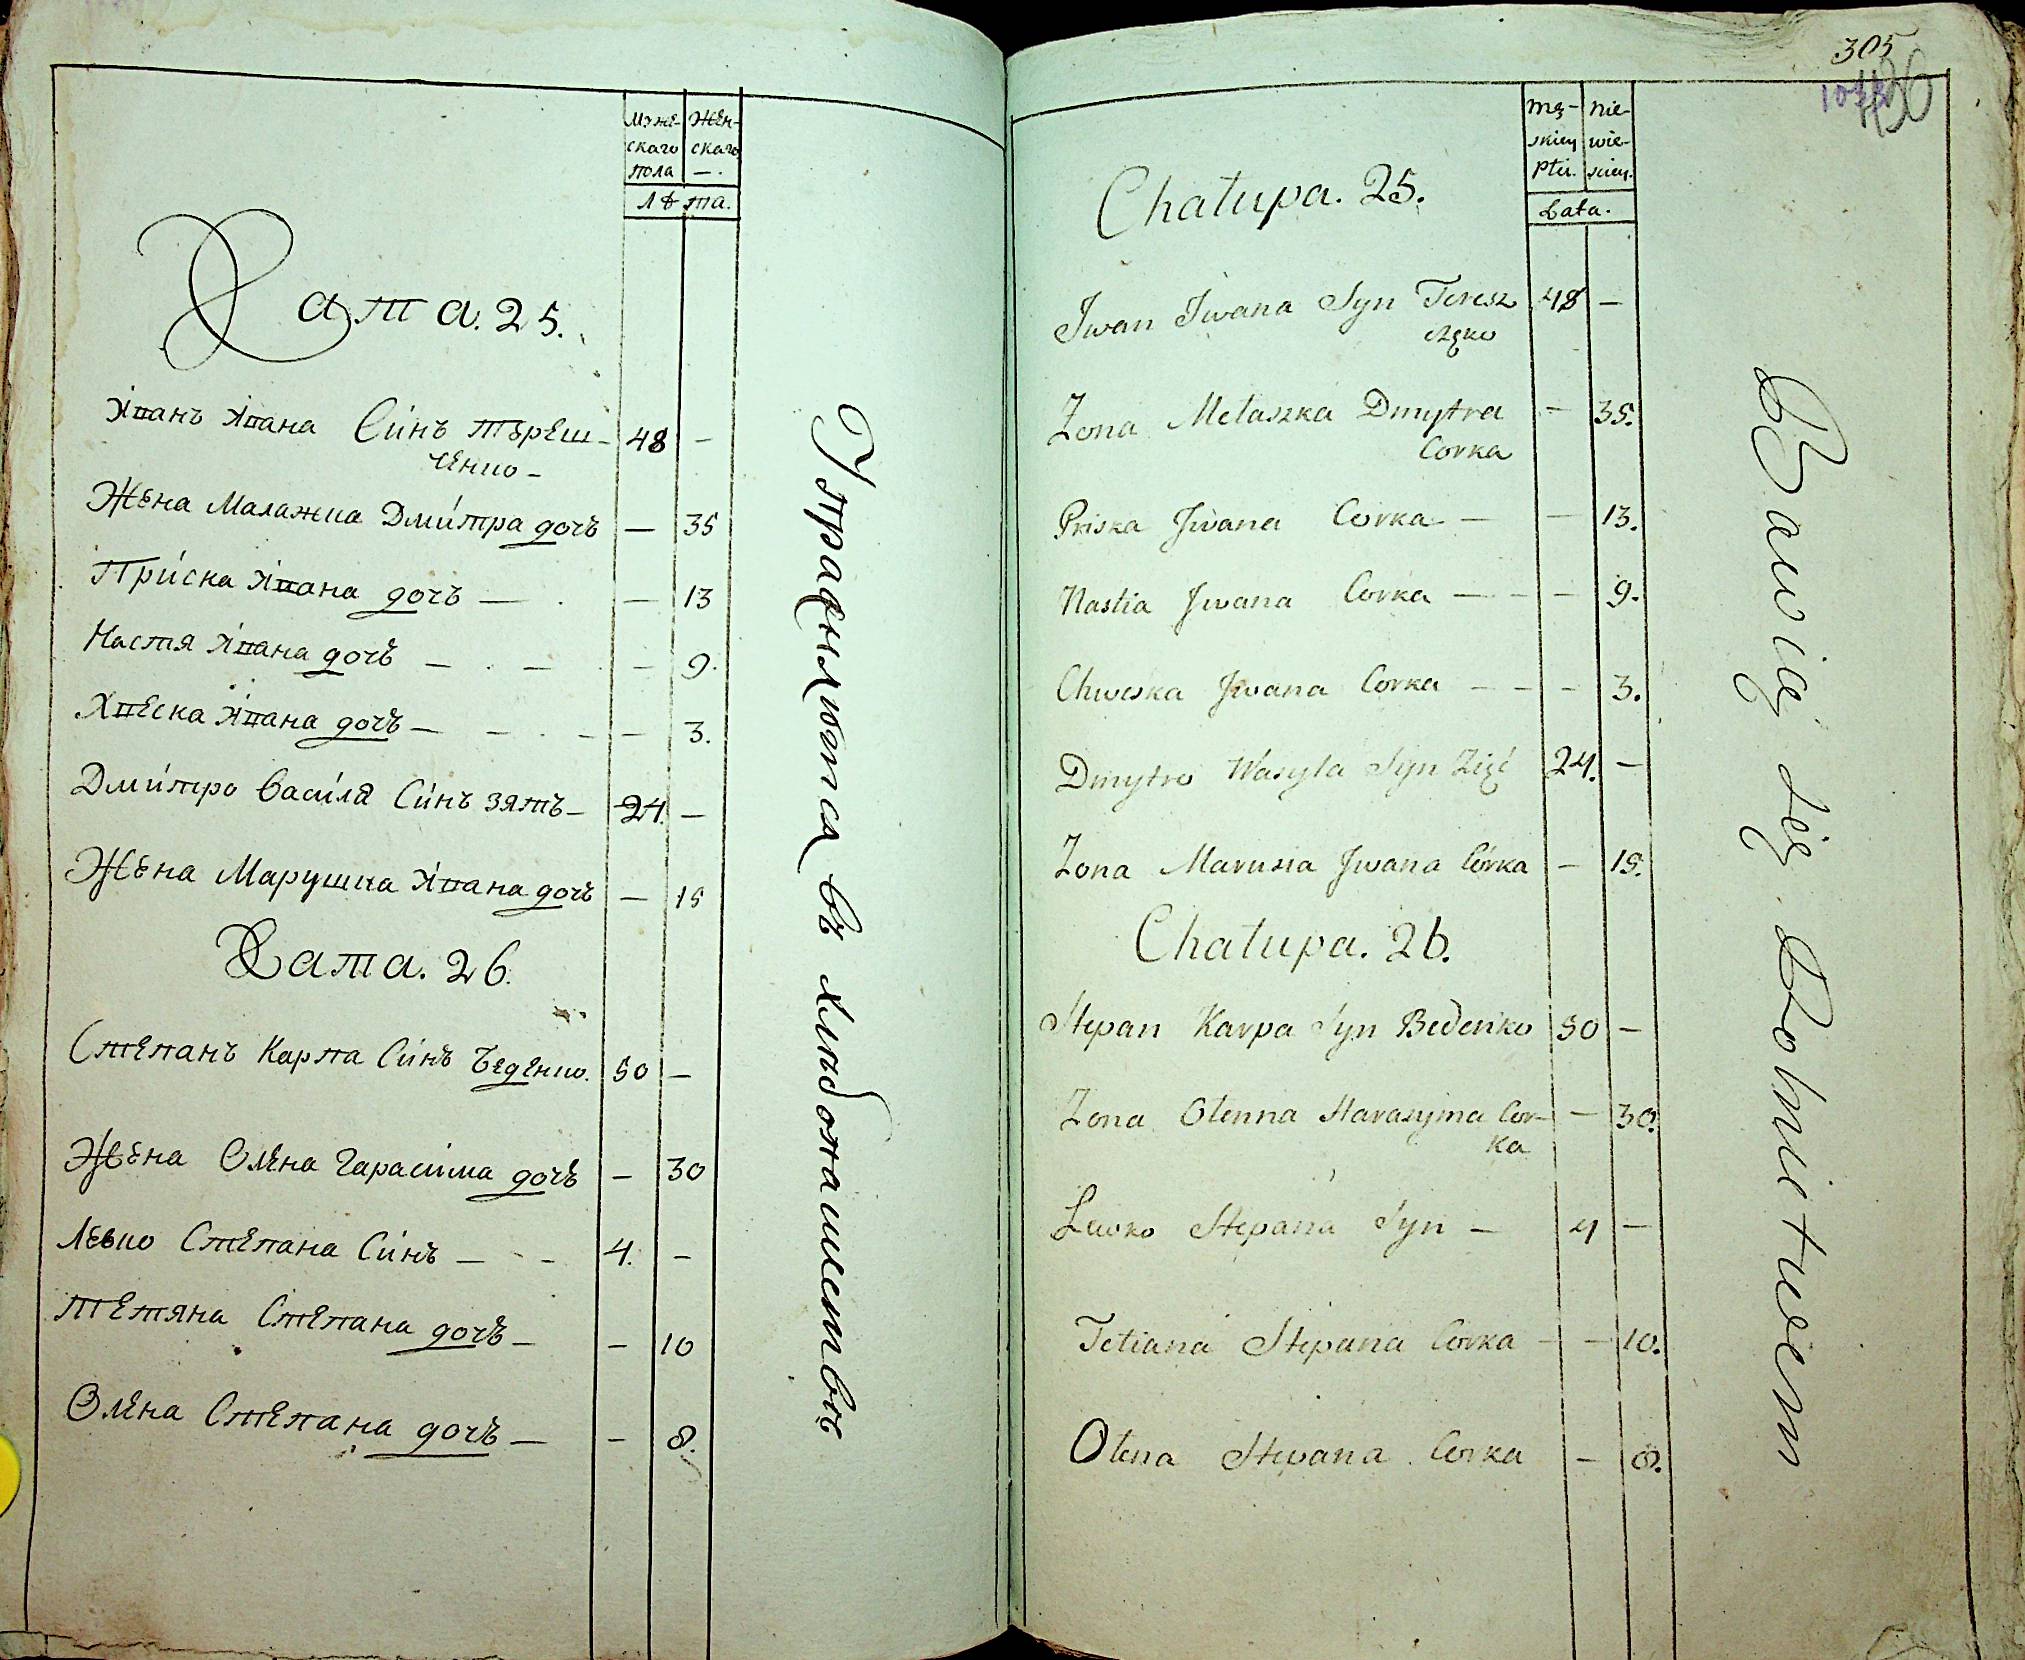 Мүже- Жен-
скаго скаго
пола —.
Лѣта.
Хата. 25.
Іванъ Івана Сѝнъ Тереш- 48 —
ченко –
Жена Малажка Дмѝтра дочъ — 35
Прѝска Івана дочъ — — 13
Настя Івана дочъ — — — 9.
Хвеска Івана дочъ — — — — 3.
Дмѝтро Васѝля Сѝнъ зять — 24. —
Жена Марушка Івана дочъ — 15
Хата. 26.
Степанъ Карпа Сѝнъ Беденко. 50 —
Жена Олена Гарасѝма дочъ — 30
Левко Степана Сѝнъ — – 4. –
Тетяна Степана дочъ — – 10
Олена Степана дочъ — – 8.
Упражняются в хлебопашествѣ
305
męz- nie-
skiey wie-
płci. sciey.
Lata.
Chałupa. 25.
Jwan Jwana Syn Teresz 48 —
częko
Zona Melaszka Dmytra — 35.
Corka
Priska Jwana Corka — — 13.
Nastia Jwana Corka — – — 9.
Chweska Jwana Corka — – — 3.
Dmytro Wasyla Syn Zięć 24. —
Zona Marusia Jwana Córka — 15.
Chałupa. 26.
Stepan Karpa Syn Bedeńko 50 —
Zona Olenna Harasyma Cor- — 30.
ka
Lewko Stepana Syn — 4 —
Tetiana Stepana Corka — — 10.
Olena Stepana Corka — 8.
Bawią się Rolnictwem